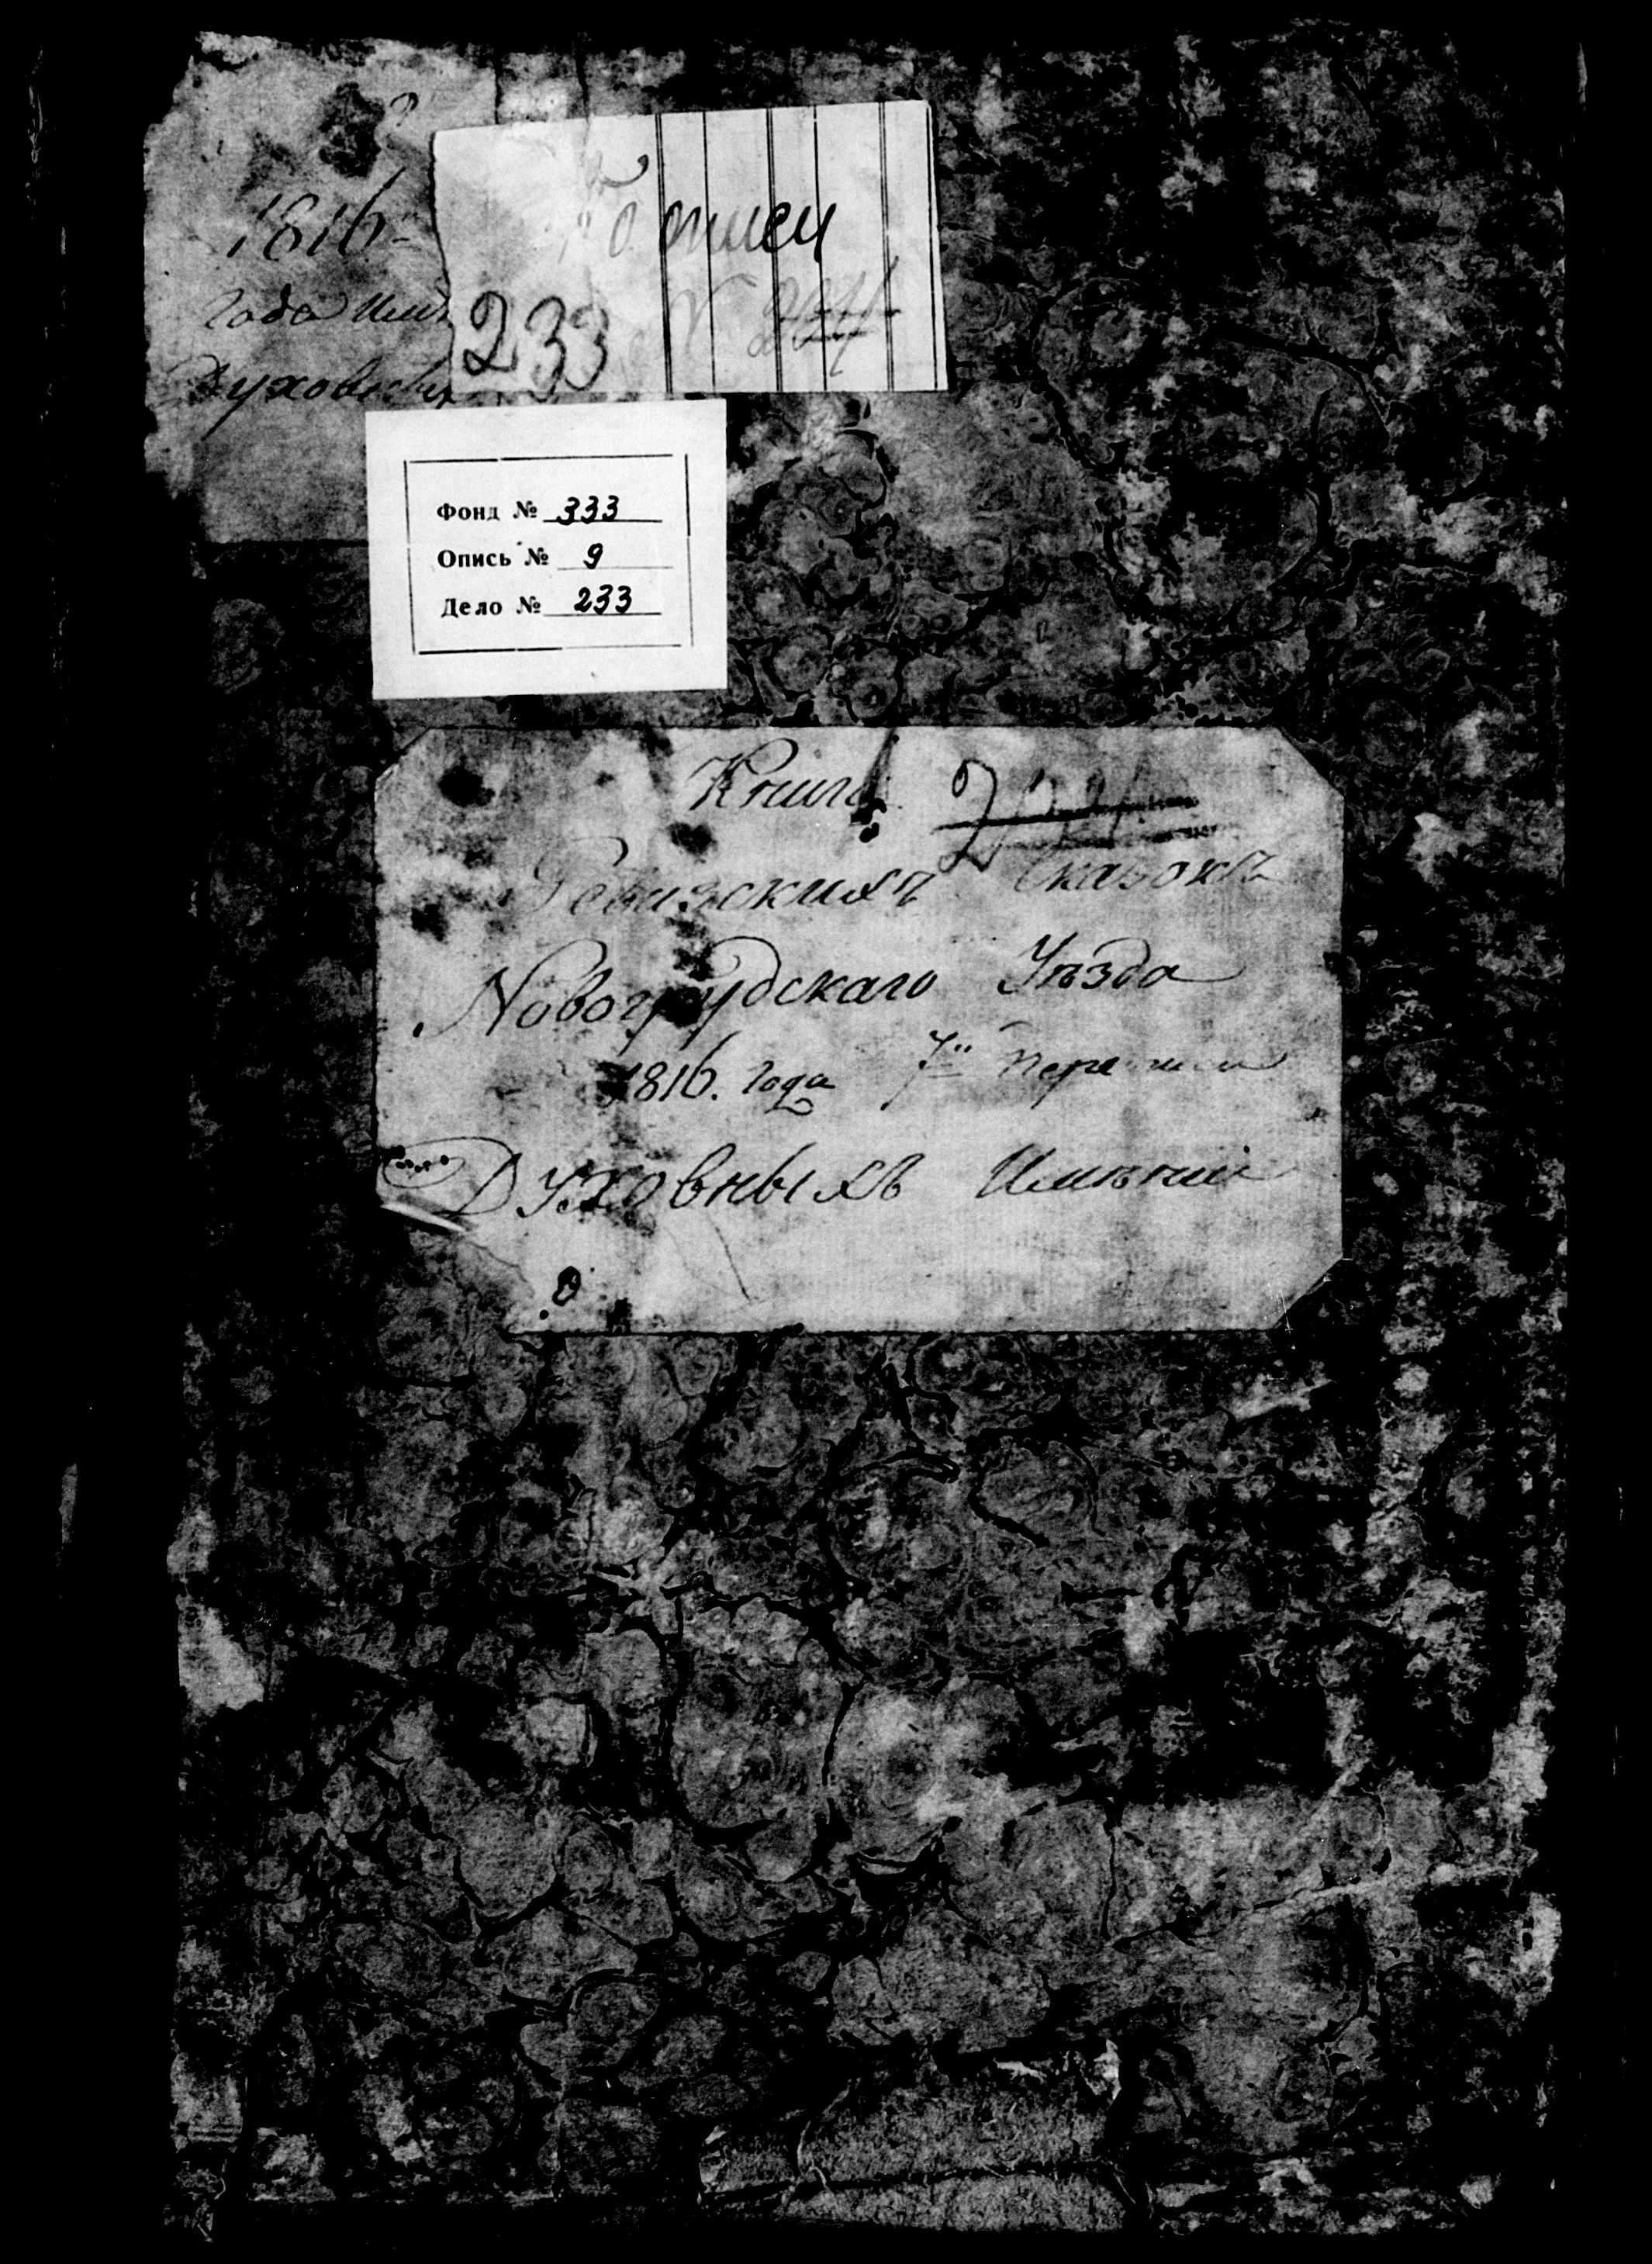 1816
года Имѣ
Духовны
описи
233
Фонд № 333
Опись № 9
Дело № 233
Книга
Ревизскихъ Сказокъ
Новогрудскаго Уѣзда
1816. года 7й переписи
Духовныхъ Имѣній